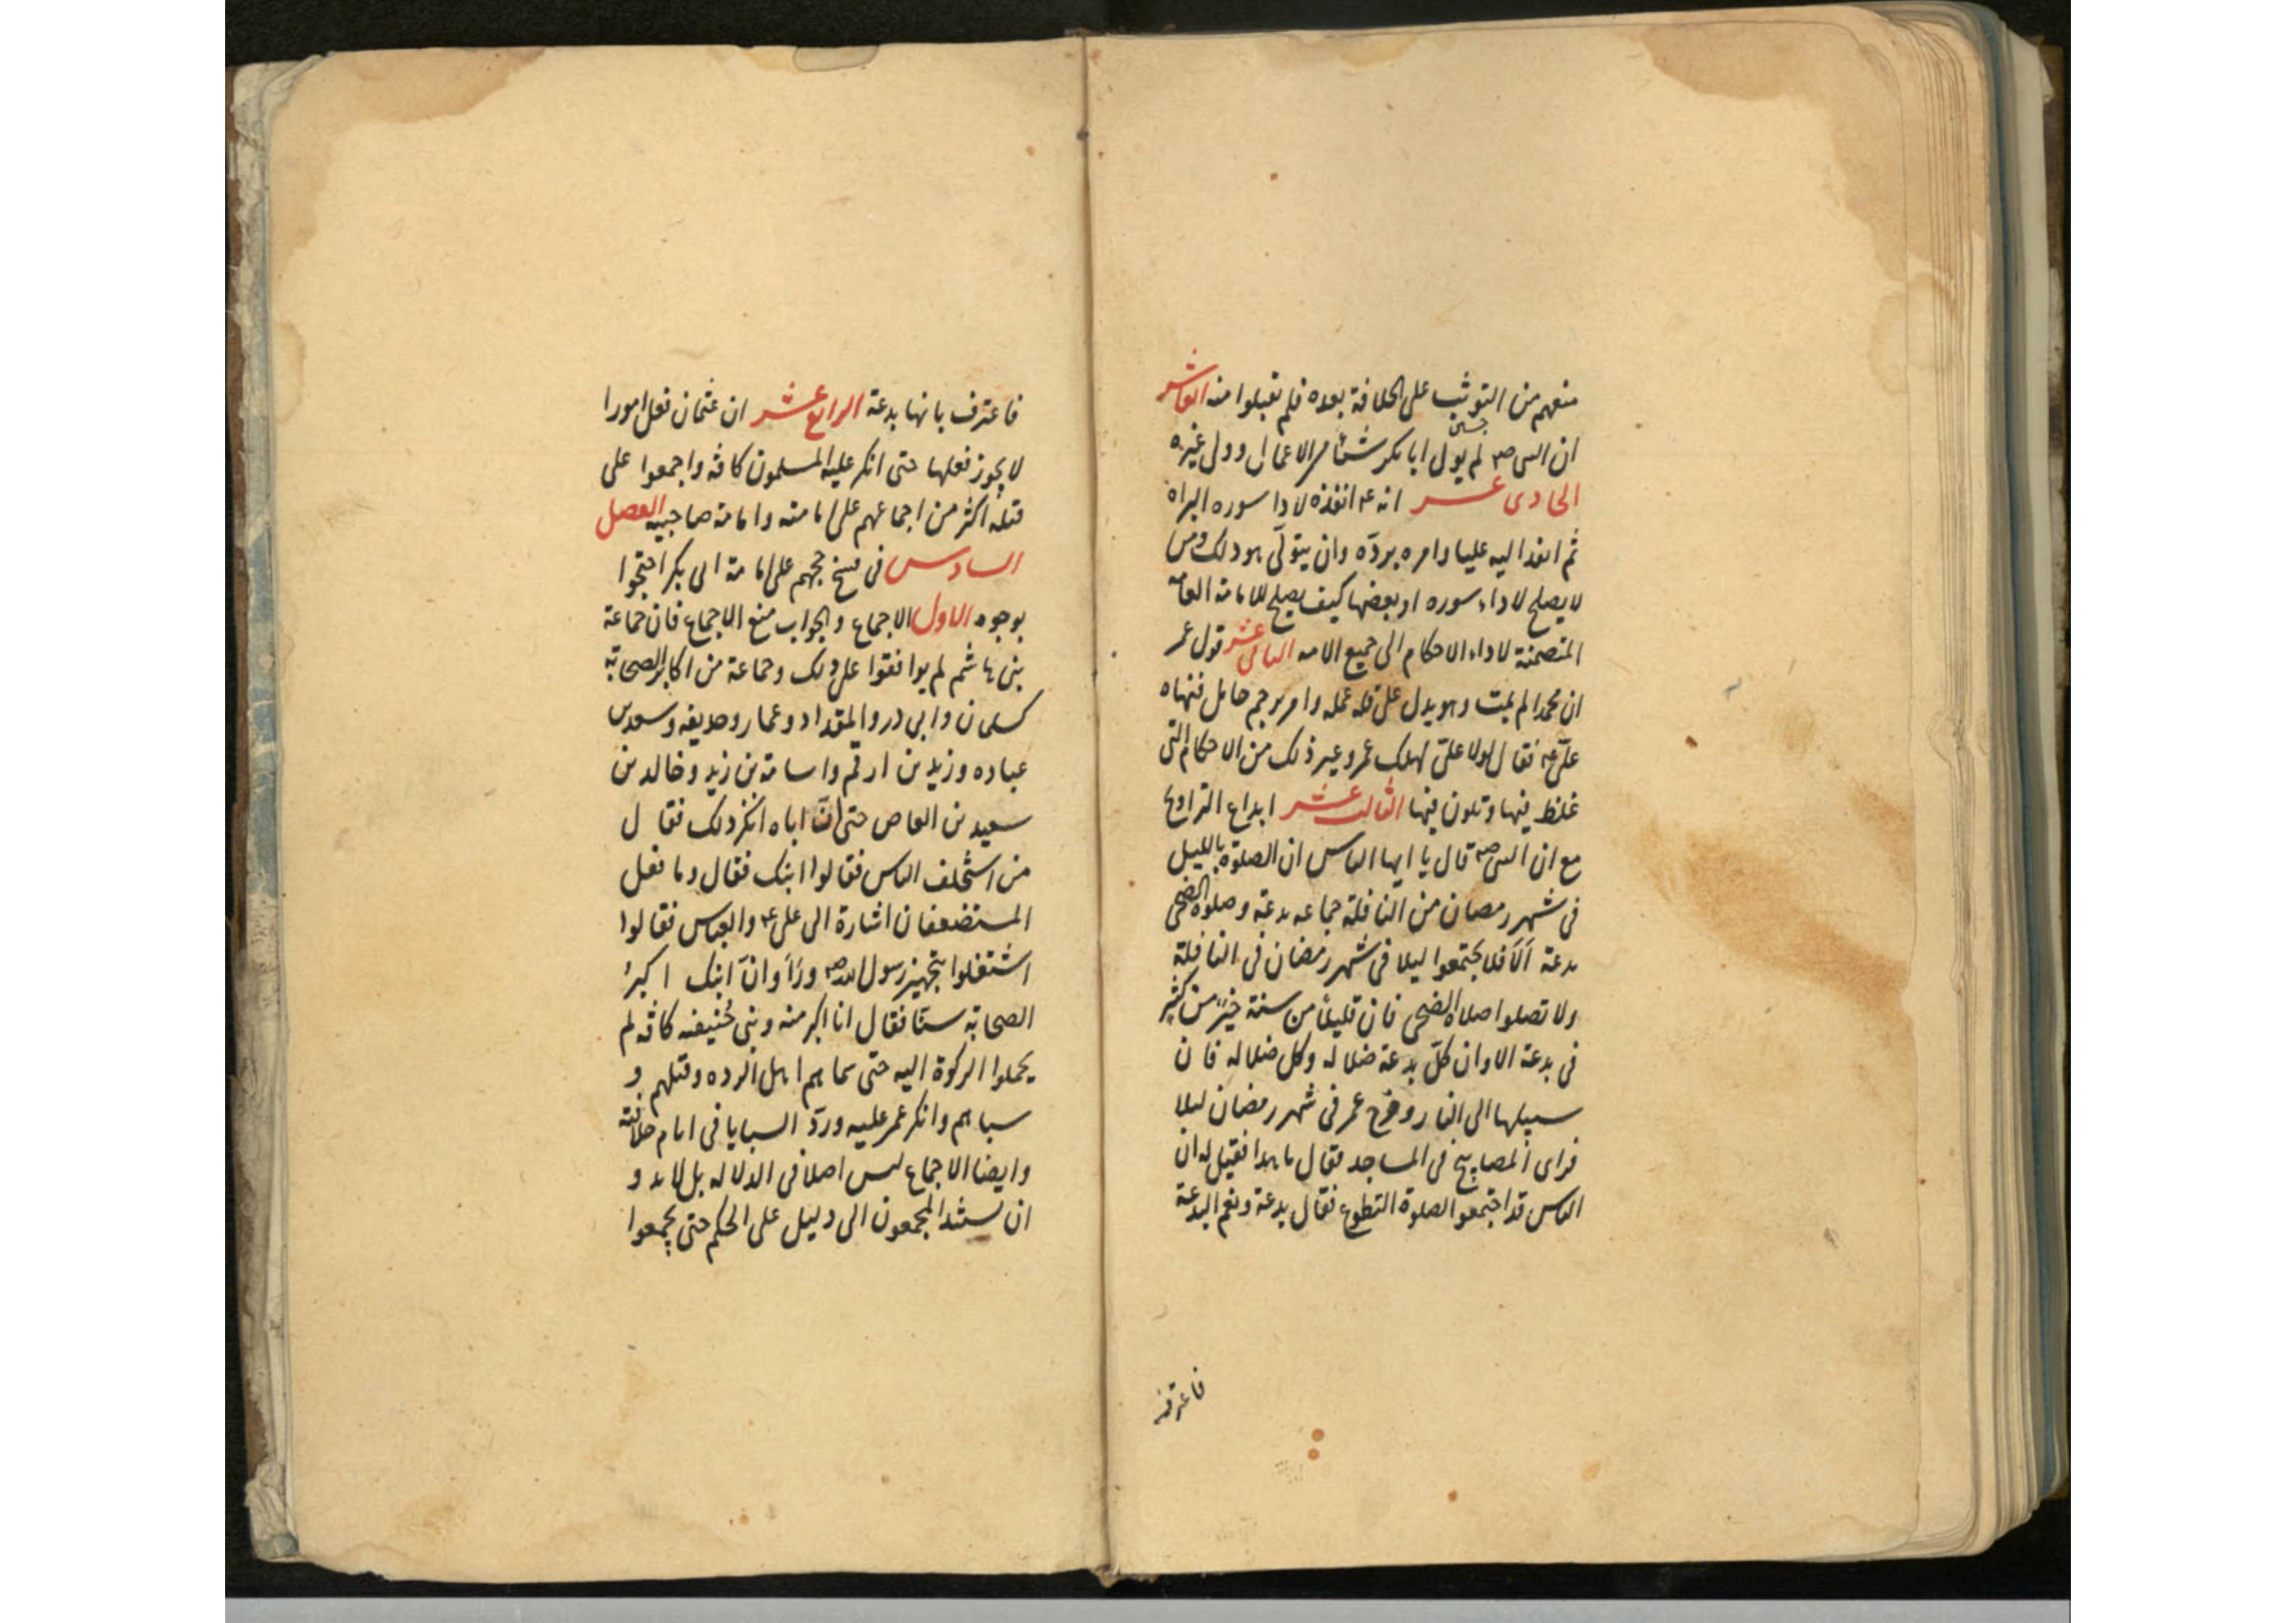 منعهم من التوثب على الخلافة بعده فلم تقبلوا منه العاشر
ان النبى ص لم يول ابا بكر شيئا من الاعمال وولى غيره
الحادى عشر انه ع انفذه لادا سوره البراه
ثم انفذ اليه عليا وامره بردّه وان يتولّى هو ذلك ومن
لا يصلح لاداء سوره او بعضها كيف يصلح للامامة العامه
المتضمنة لاداء الاحكام الى جميع الامه الثانى عشر قول عمر
ان محمدا لم يمت وهو يدل على قله علمه وامر برجم حامل فنهاه
علىّ ع فقال لولا علىّ لهلك عمر وغير ذلك من الاحكام التى
غلط فيها وتلون فيها الثالث عشر ابداع التراويح
مع ان النبى ص قال يا ايها الناس ان الصلوة بالليل
فى شهر رمضان من النافلة جماعه بدعة وصلوة الضحى
بدعة الَا فلا تجتمعوا ليلا فى شهر رمضان فى النافلة
ولا تصلوا صلاة الضحى فان قليلاً من سنة خيرٌ من كثير
فى بدعة الا وان كلّ بدعة ضلاله وكل ضلاله فان
سبيلها الى النار وخرج عمر فى شهر رمضان ليلا
فراى المصابيح فى المساجد فقال ما هذا فقيل له ان
الناس قد اجتمعوا لصلوة التطوع فقال بدعة ونعم البدعة
فاعترف
فاعترف بانها بدعة الرابع عشر ان عثمان فعل امورا
لا يجوز فعلها حتى انكر عليه المسلمون كافة واجمعوا على
قتله اكثر من اجماعهم على امامته وامامة صاحبيه الفصل
السادس فى فسخ حججهم على امامة ابى بكر احتجوا
بوجوه الاول الاجماع والجواب منع الاجماع فان جماعة
بنى هاشم لم يوافقوا على ذلك وجماعة من اكابر الصحابة
كسلمان وابى ذر والمقداد وعمار وحذيفه وسعد بن
عباده وزيد بن ارقم واسامة بن زيد وخالد بن
سعيد بن العاص حتى انّ اباه انكر ذلك فقال
من استخلف الناس فقالوا ابنك فقال وما فعل
المستضعفان اشارة الى على ع والعباس فقالوا
اشتغلوا بتجهيز رسول الله ص ورَاَوا انّ ابنك اكبرُ
الصحابة سنّا فقال انا اكبر منه وبنى حُنيفه كافّه لم
يحملوا الزكوة اليه حتى سماهم اهل الرده وقتلهم و
سباهم وانكر عمر عليه وردّ السبايا فى ايام خلافته
وايضا الاجماع ليس اصلا فى الدلاله بل لا بد و
ان يستند المجمعون الى دليل على الحكم حتى يجمعوا